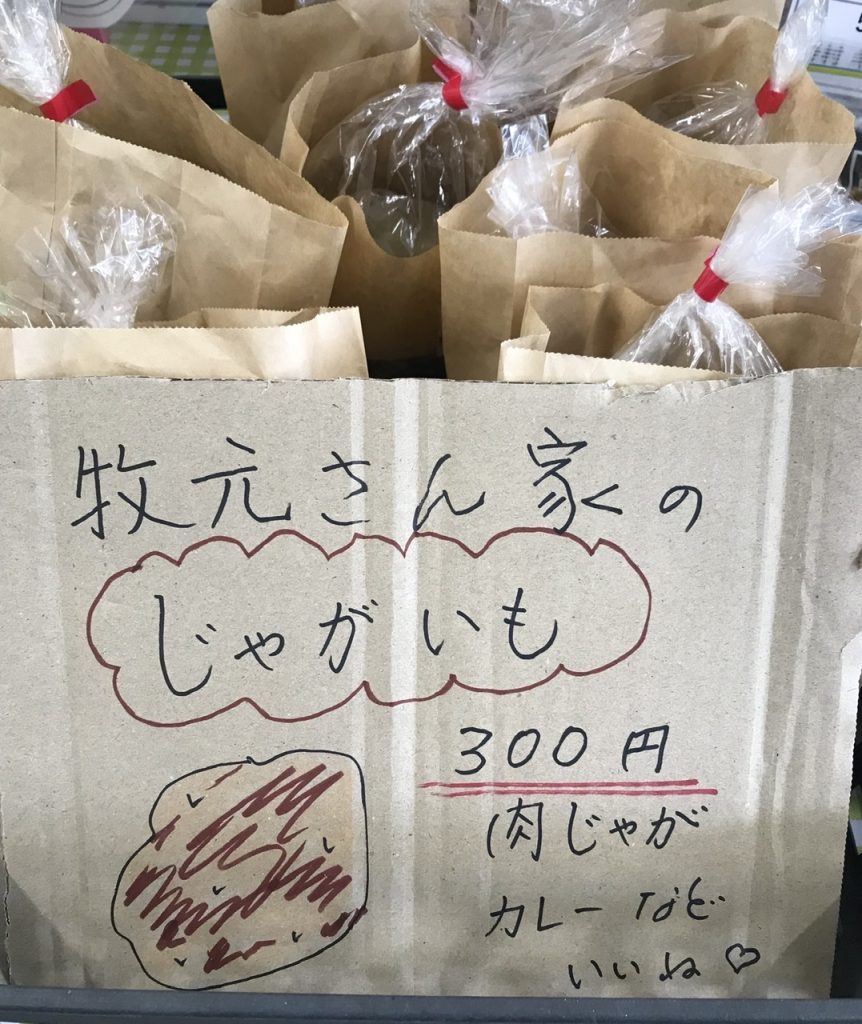 牧元さん家の
じゃがいも
300円
肉じゃが
カレーなど
いいね♡